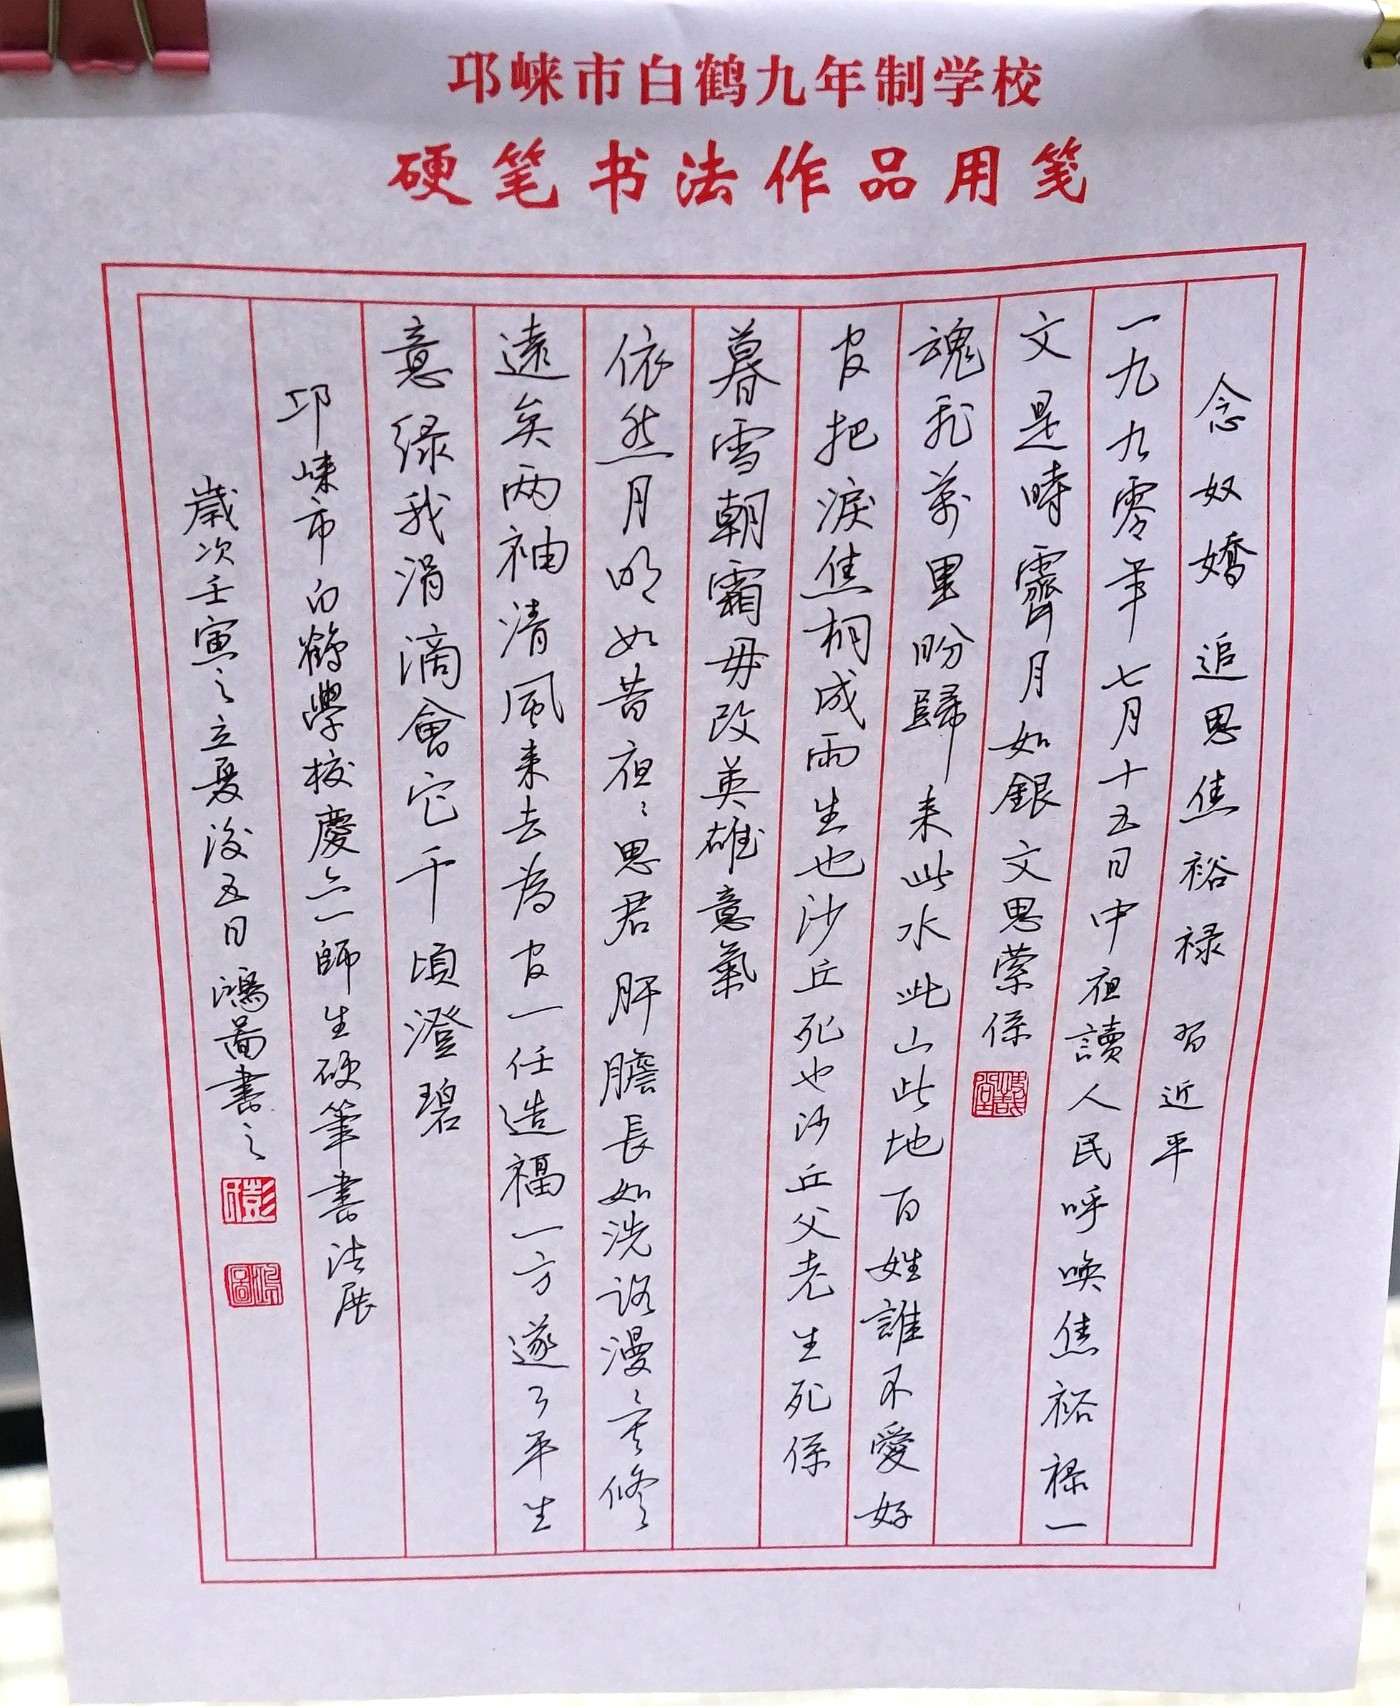 邛崃市白鹤九年制学校
硬笔书法作品用笺
念奴嬌 追思焦裕禄 習近平
一九九零年七月十五日中夜讀人民呼唤焦裕禄一
文是時霽月如銀文思縈係
魂飛萬里盼歸来此水此山此地百姓誰不愛好
官把淚焦桐成雨生也沙丘死也沙丘父老生死係
暮雪朝霜毋改英雄意氣
依然月明如昔夜〻思君肝膽長如洗路漫〻其修
遠矣两袖清風来去為官一任造福一方遂了平生
意绿我涓滴會它千頃澄碧
邛崃市白鶴學校慶六一師生硬筆書法展
歲次壬寅之立夏後五日鴻圖書之